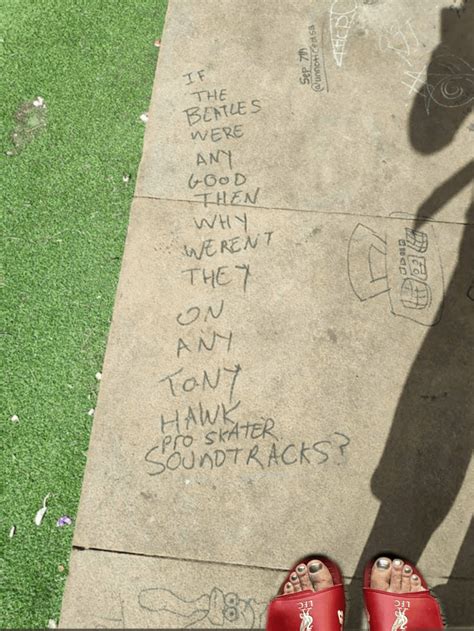 IF
THE
BEATLES
WERE
ANY
GOOD
THEN
WHY
WERENT
THEY
ON
ANY
TONY
HAWK
PRO SKATER
SOUNDTRACKS?
Sep 7th
LFC
LFC